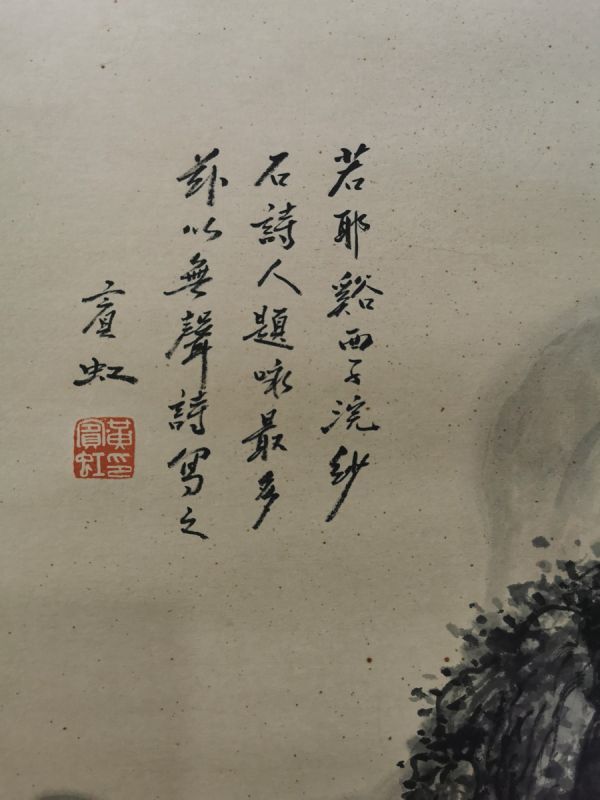 若耶谿西子浣紗
石詩人題咏最多
茲以無聲詩寫之
賓虹
黃賓虹印